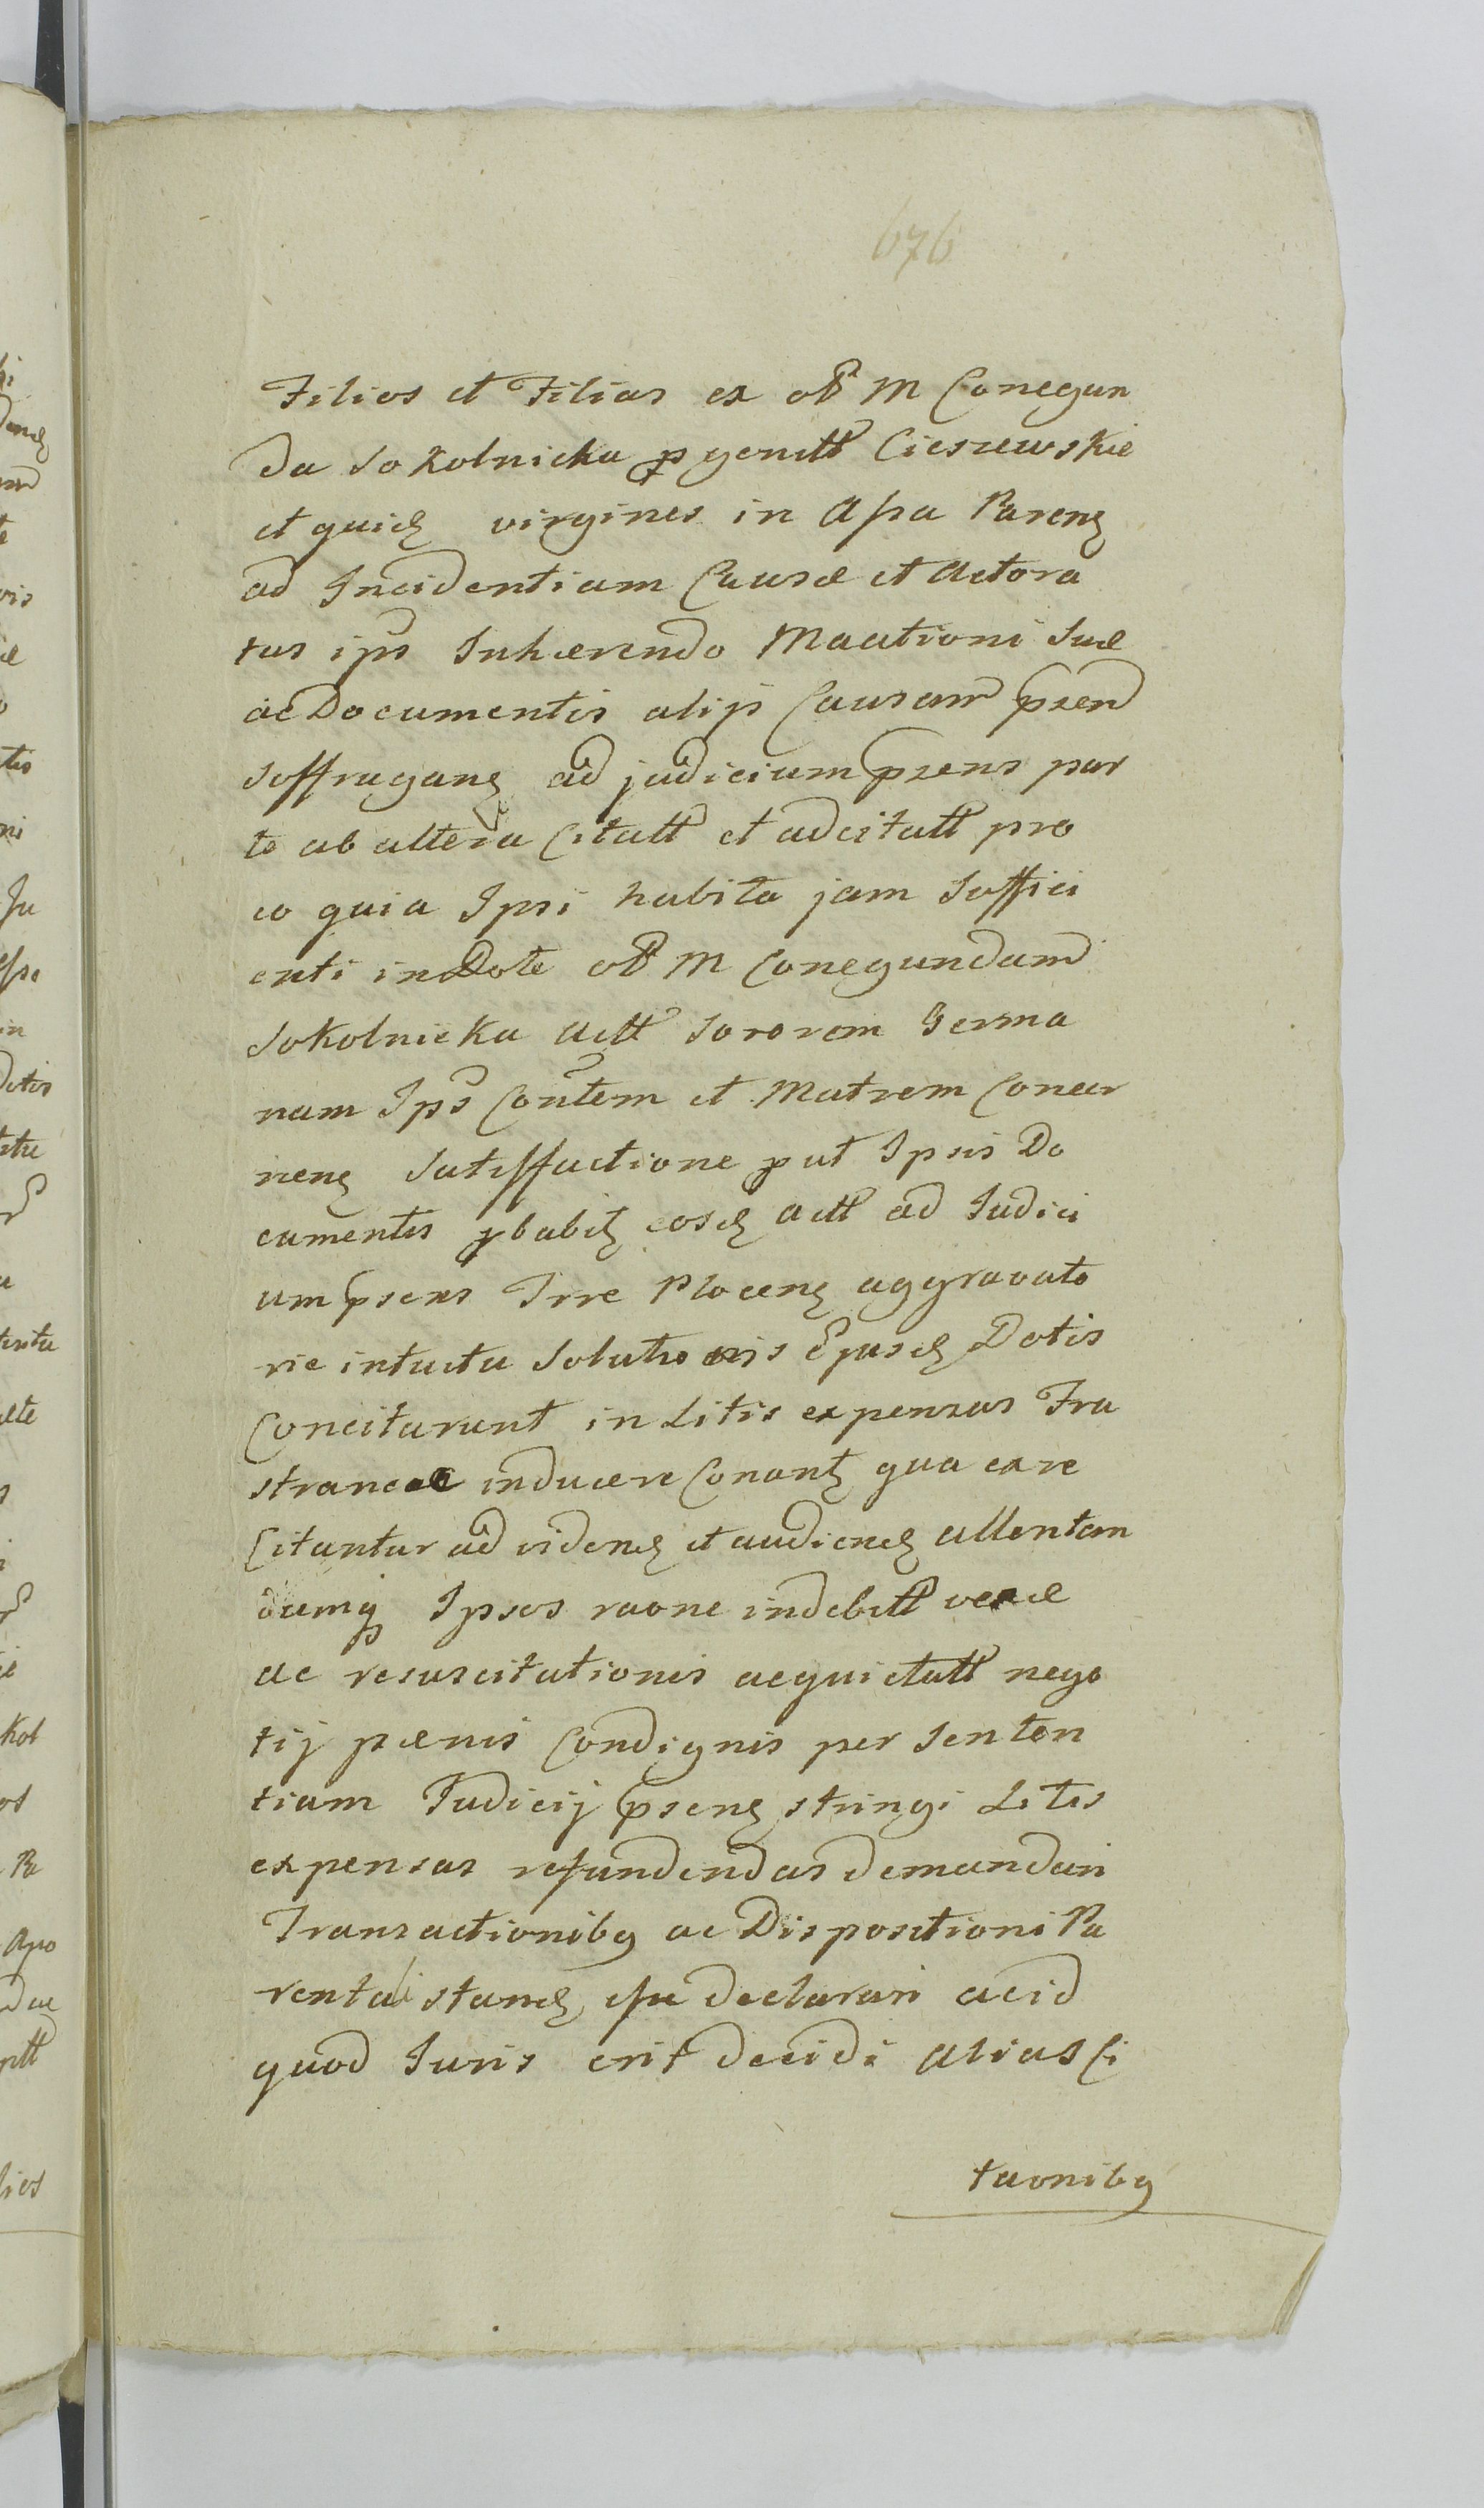 676
Filios et Filias ex olt M Conegun
da Sokolnicka pgenitt Cieszewskie
et quid virgines in Assa Parenȝ
ad Incidentiam Causæ et Actora
tus ips Inhærendo Maationi Suæ
ac Documentis alijs Causam psen
Suffraganȝ ad judicium psens par
te ab altera Citatt et adcitatt pro
eo quia Ipsi habita jam Suffici
enti in Dote olt M Conegundam
Sokolnicka actt Sororem Germa
nam Ips Contem et Matrem Concer
nenȝ Satisffactione put Ipsis Do
cumentis pbabitȝ eosdȝ actt ad Judici
um psens Trre Plocenȝ aggravato
rie intuitu Solutionis Ejusdȝ Dotis
Concitarunt in Litis expensas Fru
straneae inducere Conantȝ qua ex re
Citantur ad videndȝ et audiendȝ attentan
dumqȝ Ipsos raone indebitt vexæ
ac resuscitationis acquietatt nego
tij pænis Condignis per Senten
tiam Judicij psenȝ stringi Litis
expensas refundendas demandari
Transactionibȝ ac Dispositioni Pa
rentali standȝ esse declarari ac id
quod Juris erit decidi alias Ci
taonibȝ